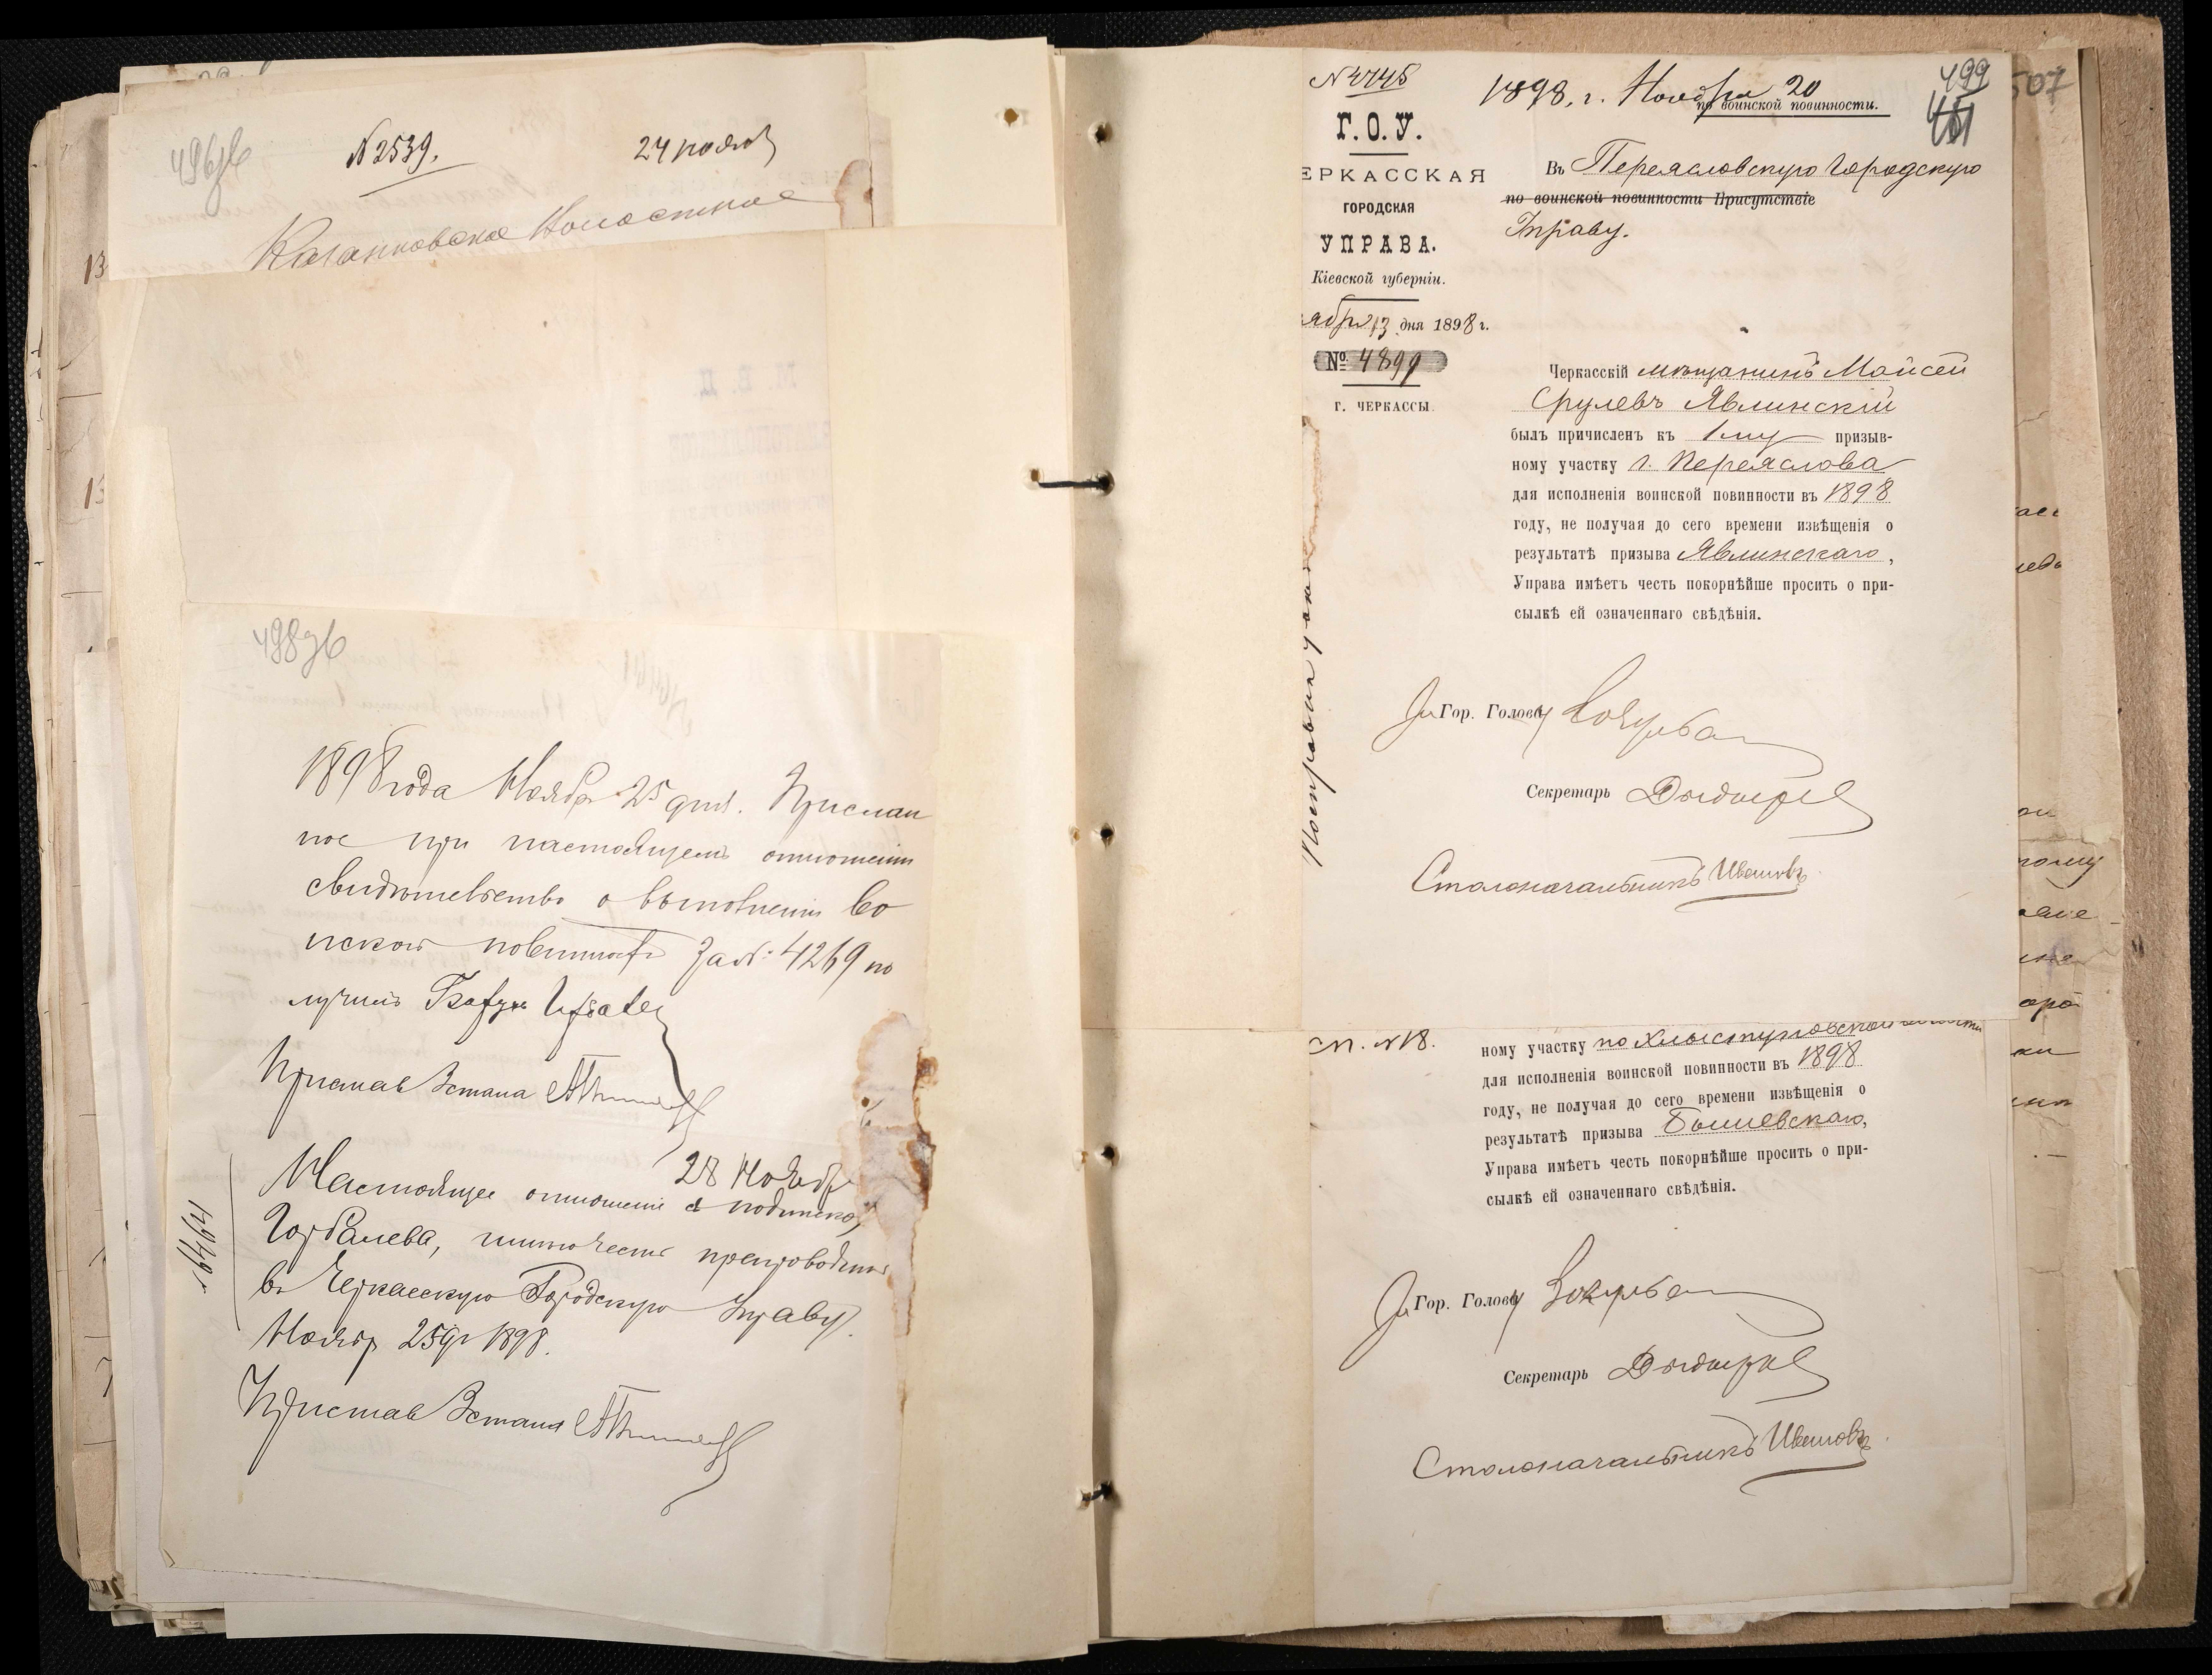 496об
№ 2539.
24 ноября
Казанковское Волостное
498об
1898 года Ноября 25 дня. Прислан
ное при настоящем отношении
свидетельство о выполнении во
инской повинности за №: 4269 по
лучил
Пристав 3 стана
28 Ноября
Настоящее отношение с подпискою
Горбалева, имею честь препроводить
в Черкасскую Городскую Управу.
Ноября 25 дня 1898.
Пристав 3 стана
499
507
N 4445
1898. г. Ноября 20
по воинской повинности.
Г. О. У.
ЕРКАССКАЯ
ГОРОДСКАЯ
УПРАВА.
Кіевской губерніи.
ября 13 дня 1898 г.
№ 4899
г. ЧЕРКАССЫ.
Въ Переяславскую Городскую
по воинской повинности Присутствіе
Управу.
Черкасскій мѣщанинъ Мойсей
Срулевъ Явлинскій
былъ причисленъ къ 1му призыв-
ному участку г. Переяслова
для исполненія воинской повинности въ 1898
году, не получая до сего времени извѣщенія о
результатѣ призыва Явлинскаго,
Управа имѣетъ честь покорнѣйше просить о при-
сылкѣ ей означеннаго свѣдѣнія.
Гор. Голову
Секретарь
Столоначальникъ Ивановъ
ст. № 18.
ному участку по Хлыстуновской волости
для исполненія воинской повинности въ 1898
году, не получая до сего времени извѣщенія о
результатѣ призыва
Управа имѣетъ честь покорнѣйше просить о при-
сылкѣ ей означеннаго свѣдѣнія.
Гор. Голову
Секретарь
Столоначальникъ Ивановъ